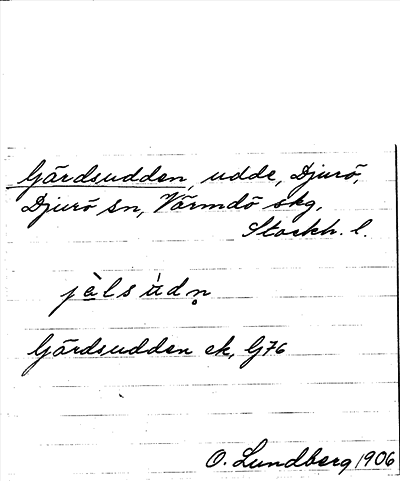 Gärdsudden, udde, Djurö,
Djurö sn, Värmdö skg,
Stockh. l.
jä̀lsu̇̀dn̥
Gärdsudden ek, G76
O. Lundberg 1906